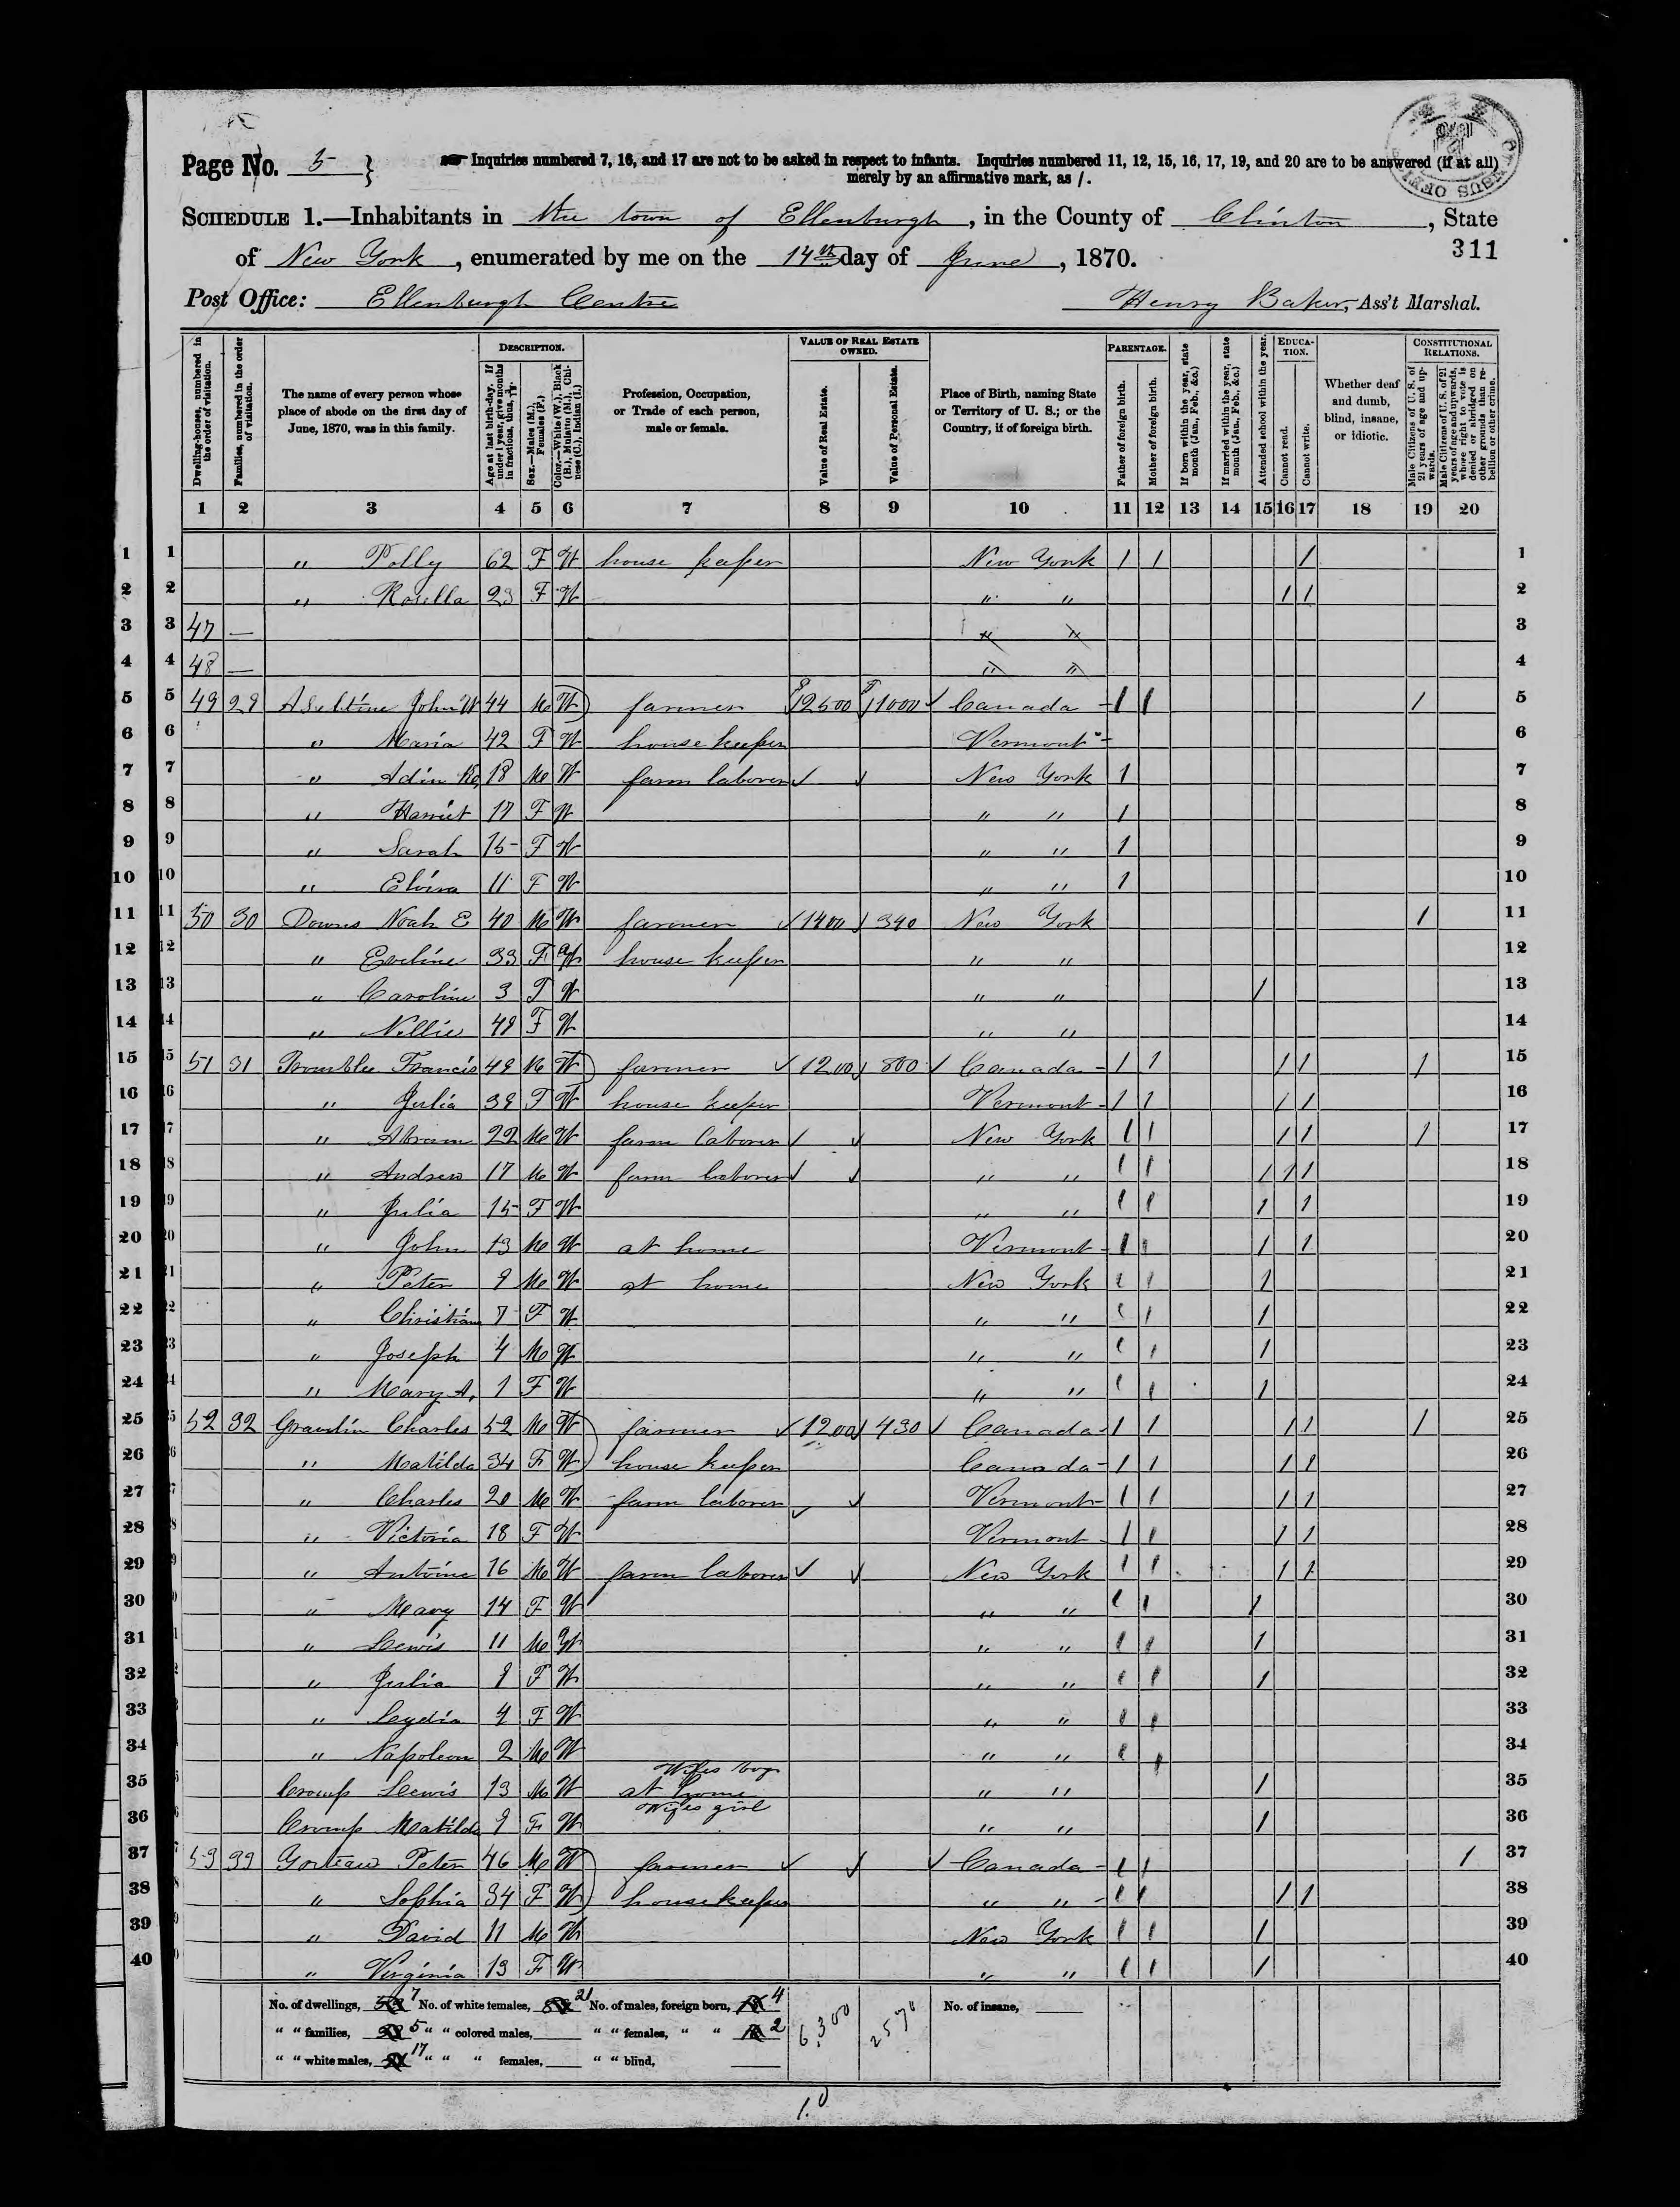 Page No. 5 }
Inquiries numbered 7, 16, and 17 are not to be asked in respect to infants. Inquiries numbered 11, 12, 15, 16, 17, 19, and 20 are to be answered (if at all)
merely by an affirmative mark, as /.
SCHEDULE 1.—Inhabitants in the town of Ellenburgh, in the County of Clinton, State
311
of New York, enumerated by me on the 14th day of June, 1870.
Post Office: Ellenburgh Centre Henry Baker, Ass't Marshal.
Dwelling-houses, numbered in the order of visitation.
Families, numbered in the order of visitation.
The name of every person whose place of abode on the first day of June, 1870, was in this family.
DESCRIPTION.
Age at last birth-day. If under 1 year, give months in fractions, thus,
Sex.—Males (M.), Females (F.)
Color.—White (W.), Black (B.), Mulatto (M.), Chinese (C.), Indian (I.)
Profession, Occupation, or Trade of each person, male or female.
VALUE OF REAL ESTATE OWNED.
Value of Real Estate.
Value of Personal Estate.
Place of Birth, naming State or Territory of U. S.; or the Country, if of foreign birth.
PARENTAGE.
Father of foreign birth.
Mother of foreign birth.
If born within the year, state month (Jan., Feb., &c.)
If married within the year, state month (Jan., Feb., &c.)
Attended school within the year.
EDUCATION.
Cannot read.
Cannot write.
Whether deaf and dumb, blind, insane, or idiotic.
CONSTITUTIONAL RELATIONS.
Male Citizens of U. S. of 21 years of age and upwards.
Male Citizens of U. S. of 21 years of age and upwards, whose right to vote is denied or abridged on other grounds than rebellion or other crime.
1 2 3 4 5 6 7 8 9 10 11 12 13 14 15 16 17 18 19 20
1 " Polly 62 F W house keeper New York / / / 1
2 " Rosella 23 F W " " / / 2
3 47 — " " 3
4 48 — " " 4
5 49 29 Aseltine John W 44 M W farmer 2500 1000 Canada / / / 5
6 " Maria 42 F W house keeper Vermont 6
7 " Adin 18 M W farm laborer New York / 7
8 " Harriet 17 F W " " / 8
9 " Sarah 15 F W " " / 9
10 " Elvira 11 F W " " / 10
11 50 30 Downs Noah E 40 M W farmer 1400 340 New York / 11
12 " Eveline 33 F W house keeper " " 12
13 " Caroline 3 F W " " / 13
14 " Nellie F W " " 14
15 51 31 Tromblee Francis 49 M W farmer 1200 800 Canada / / / / / 15
16 " Julia 39 F W house keeper Vermont / / / / 16
17 " Abram 22 M W farm laborer New York / / / / / 17
18 " Andrew 17 M W farm laborer " " / / / / / 18
19 " Julia 15 F W " " / / / / 19
20 " John 13 M W at home Vermont / / / / 20
21 " Peter 9 M W at home New York / / / 21
22 " Christian 7 F W " " / / / 22
23 " Joseph 4 M W " " / / / 23
24 " Mary A, 1 F W " " / / / 24
25 52 32 Gravlin Charles 52 M W farmer 1200 430 Canada / / / / / 25
26 " Matilda 34 F W house keeper Canada / / / / 26
27 " Charles 20 M W farm laborer Vermont / / / / 27
28 " Victoria 18 F W Vermont / / / / 28
29 " Antoine 16 M W farm laborer New York / / / / 29
30 " Mary 14 F W " " / / / 30
31 " Lewis 11 M W " " / / / 31
32 " Julia 9 F W " " / / / 32
33 " Leydia 4 F W " " / / 33
34 " Napoleon 2 M W " " / / 34
Wifes boy
35 Cromp Lewis 13 M W at home " " / 35
Wifes girl
36 Cromp Matilda 9 F W " " / 36
37 53 33 Gorteau Peter 46 M W farmer Canada / / / 37
38 " Sophia 34 F W housekeeper " " / / / / 38
39 " David 11 M W New York / / / 39
40 " Virginia 13 F W " " / / / 40
No. of dwellings, 7 No. of white females, 21 No. of males, foreign born, 4 6,300 2570 No. of insane,
" " families, 5 " " colored males, " " females, " " 2
" " white males, 17 " " " females, " " blind,